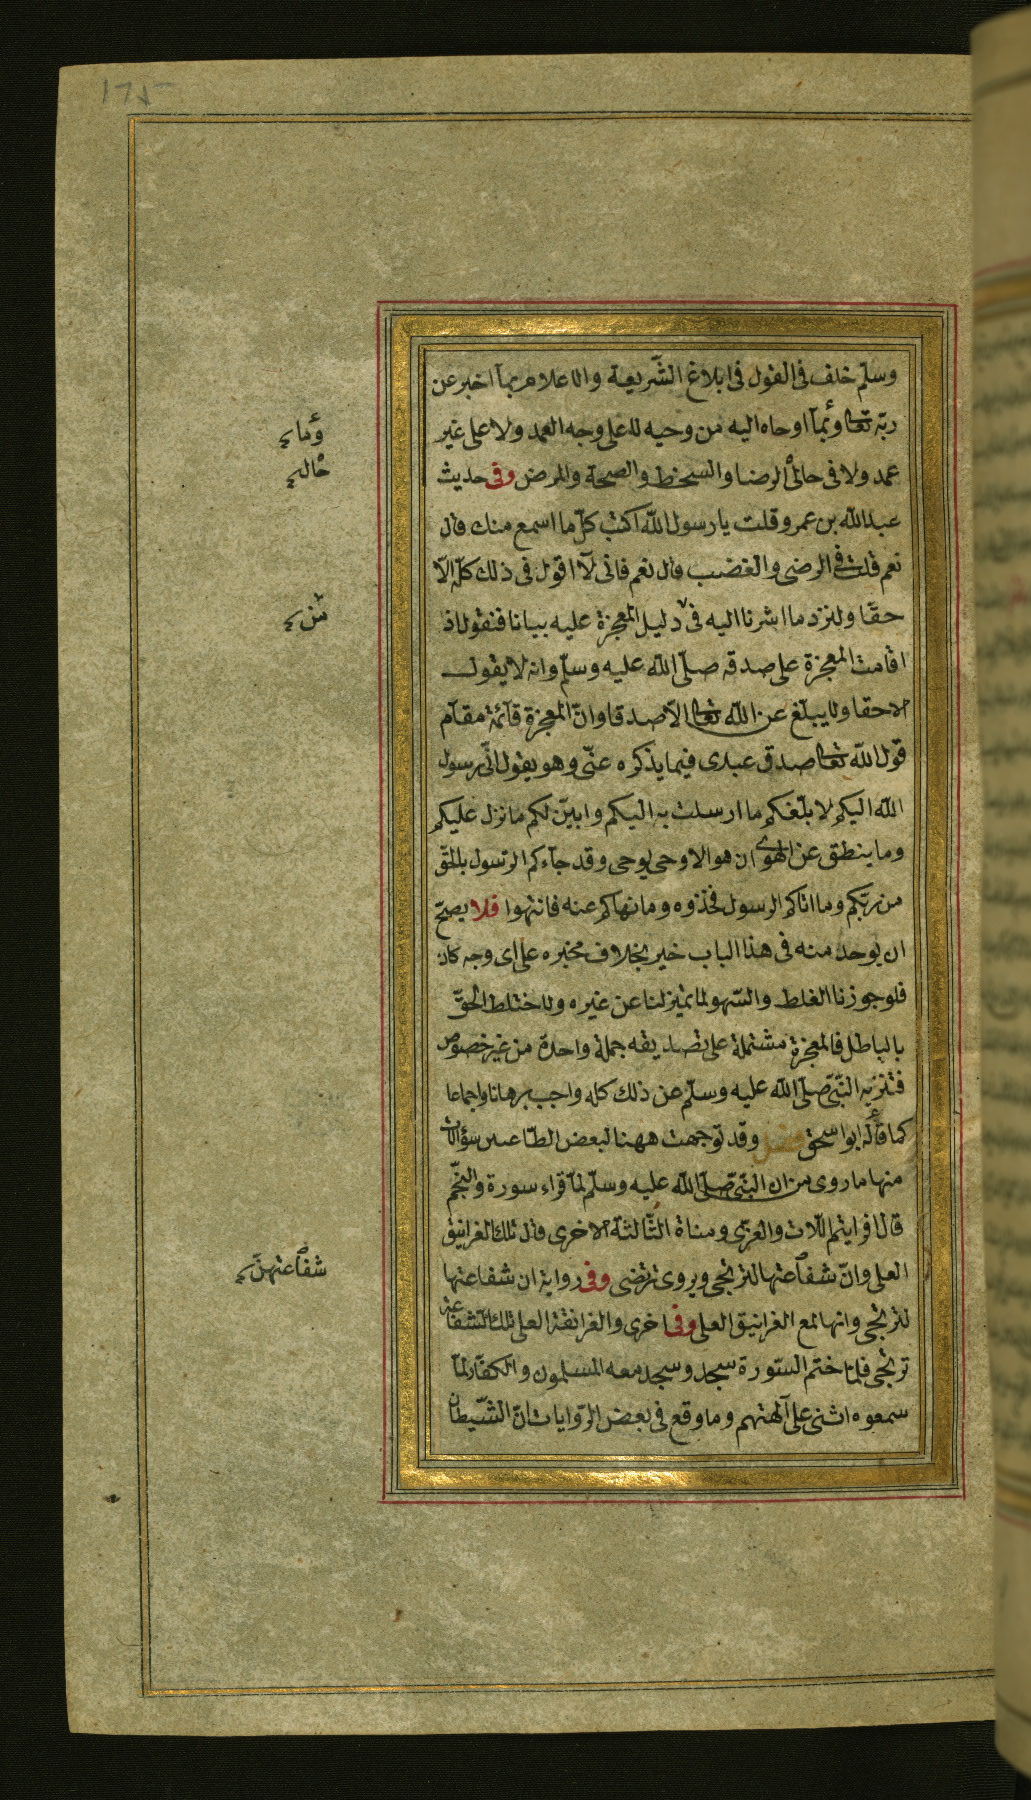 ١٦٥
وسلّم خلف فى القول فى ابلاغ الشّريعة والاعلام بما اخبر عن
ربّه تعالى وبما اوحاه اليه من وحيه لا على وجه العمد ولا على غير
عمد ولا فى حالى الرضا والسخط والصحة والمرض وفى حديث
عبد الله بن عمرو قلت يا رسول الله اكتب كلّ ما اسمع منك قال
نعم قلت فى الرضى والغضب قال نعم فانى لا اقول فى ذلك كلّه الّا
حقّا ولنزد ما اشرنا اليه فى دليل المعجزة عليه بيانا فنقول اذ
اقامت المعجزة على صدقه صلّى الله عليه وسلّم وانه لا يقول
الا حقا ولا يبلّغ عن الله تعالى الّا صدقا وانّ المعجزة قائمة مقام
قول الله تعالى صدق عبدى فيما يذكره عنّى وهو يقول انّى رسول
الله اليكم لابلّغكم ما ارسلت به اليكم وابيّن لكم ما نزل عليكم
وما ينطق عن الهوى ان هو الا وحى يوحى وقد جاءكم الرسول بالحقّ
من ربّكم وما اتاكم الرسول فخذوه وما نهاكم عنه فانتهوا فلا يصحّ
ان يوجد منه فى هذا الباب خبر بخلاف مخبره على اى وجه كان
فلو جوزنا الغلط والسّهو لما تميّز لنا عن غيره ولاختلط الحقّ
بالباطل فالمعجزة مشتملة على تصديقه جملة واحدة من غير خصوص
فتنزيه النّبىّ صلّى الله عليه وسلّم عن ذلك كله واجب برهانا واجماعا
كما قاله ابو اسحق فصل وقد توجهت ههنا لبعض الطّاعنين سؤالات
منها ما روى من ان النبىّ صلّى الله عليه وسلّم لمّا قراء سورة والنّجم
قال افرايتم اللّات والعزّى ومناة الثّالثة الاخرى قال تلك الغرانيق
العلى وانّ شفاعتها لترتجى ويروى ترتضى وفى رواية ان شفاعتها
لترتجى وانها لمع الغرانيق العلى وفى اخرى والغرانقة العلى تلك الشّفاعة
ترتجى فلمّا ختم السّورة سجد وسجد معه المسلمون والكفّار لمّا
سمعوه اثنى على آلهتهم وما وقع فى بعض الرّوايات انّ الشّيطان
وما
حاله
شفاعتهنّ